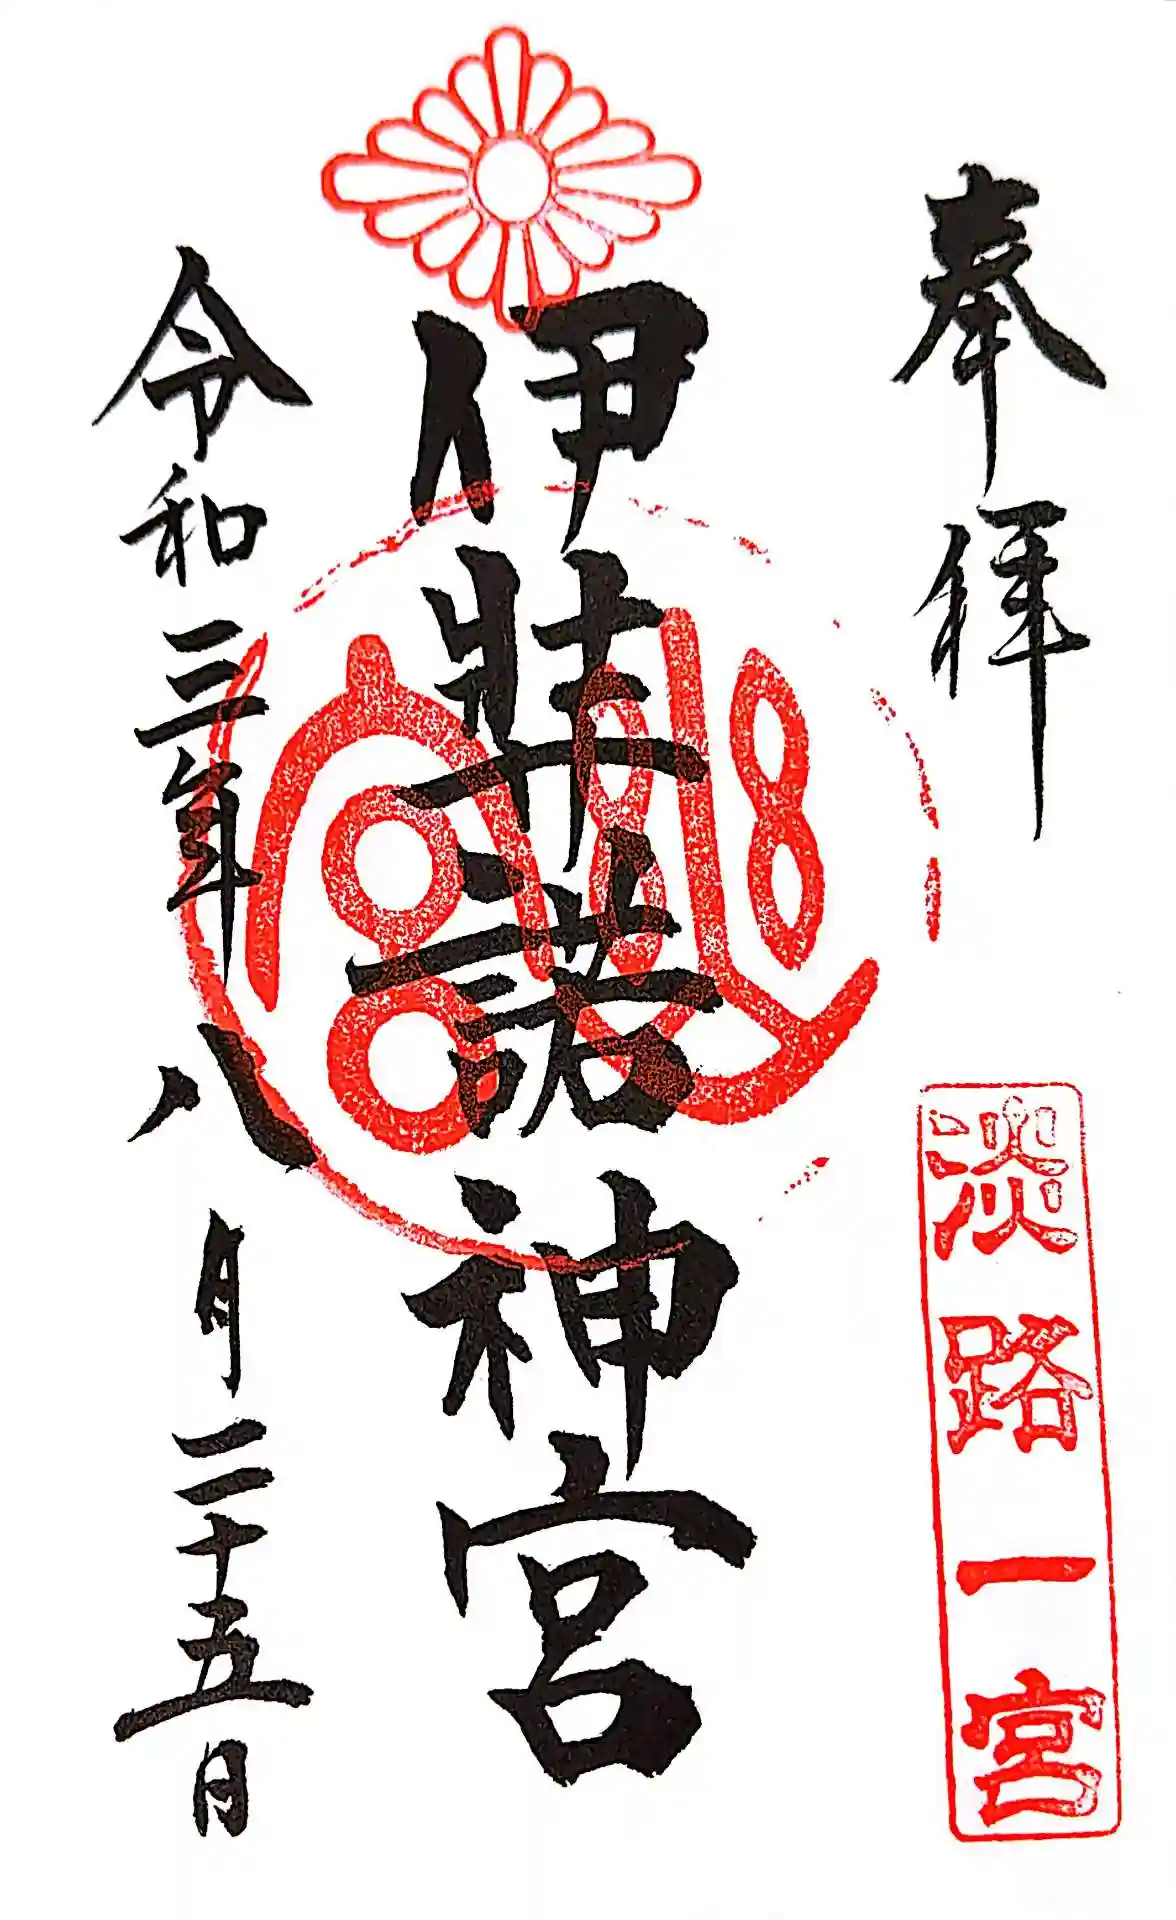 奉拝
淡路一宮
伊弉諾神宮
幽宮
令和三年八月二十五日